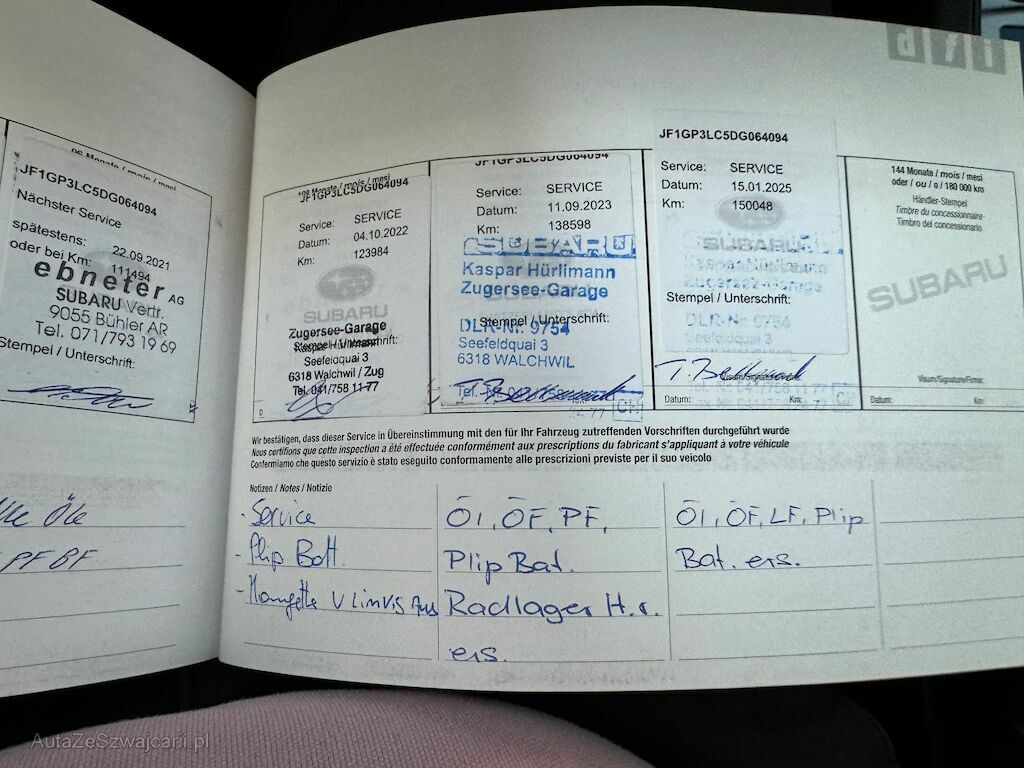 96 Monate / mois / mesi
JF1GP3LC5DG064094
Nächster Service
spätestens: 22.09.2021
oder bei Km: 111494
ebneter AG
SUBARU Vertr.
9055 Bühler AR
Tel. 071/793 19 69
Stempel / Unterschrift:
Öle
PF BF
108 Monate / mois / mesi
JF1GP3LC5DG064094
Service: SERVICE
Datum: 04.10.2022
Km: 123984
SUBARU
Zugersee-Garage
Kaspar Hürlimann
Stempel / Unterschrift:
Seefeldquai 3
6318 Walchwil / Zug
Tel. 041/758 11 77
JF1GP3LC5DG064094
Service: SERVICE
Datum: 11.09.2023
Km: 138598
SUBARU
Kaspar Hürlimann
Zugersee-Garage
Stempel / Unterschrift:
DLR-Nr. 9754
Seefeldquai 3
6318 WALCHWIL
JF1GP3LC5DG064094
Service: SERVICE
Datum: 15.01.2025
Km: 150048
SUBARU
Kaspar Hürlimann
Zugersee-Garage
Stempel / Unterschrift:
DLR-Nr. 9754
Visum/Signature/Firma:
Datum: Km:
144 Monate / mois / mesi
oder / ou / o / 180 000 km
Händler-Stempel
Timbre du concessionnaire
Timbro del concessionario
SUBARU
Visum/Signature/Firma:
Datum: Km:
Wir bestätigen, dass dieser Service in Übereinstimmung mit den für Ihr Fahrzeug zutreffenden Vorschriften durchgeführt wurde
Nous certifions que cette inspection a été effectuée conformément aux prescriptions du fabricant s'appliquant à votre véhicule
Confermiamo che questo servizio è stato eseguito conformamente alle prescrizioni previste per il suo veicolo
Notizen / Notes / Notizie
- Service
- Plip Batt.
- Manschette V links Aus
Öl, ÖF, PF,
Plip Bat.
Radlager H.r.
ers.
Öl, ÖF, LF, Plip
Bat. ers.
AutaZeSzwajcarii.pl